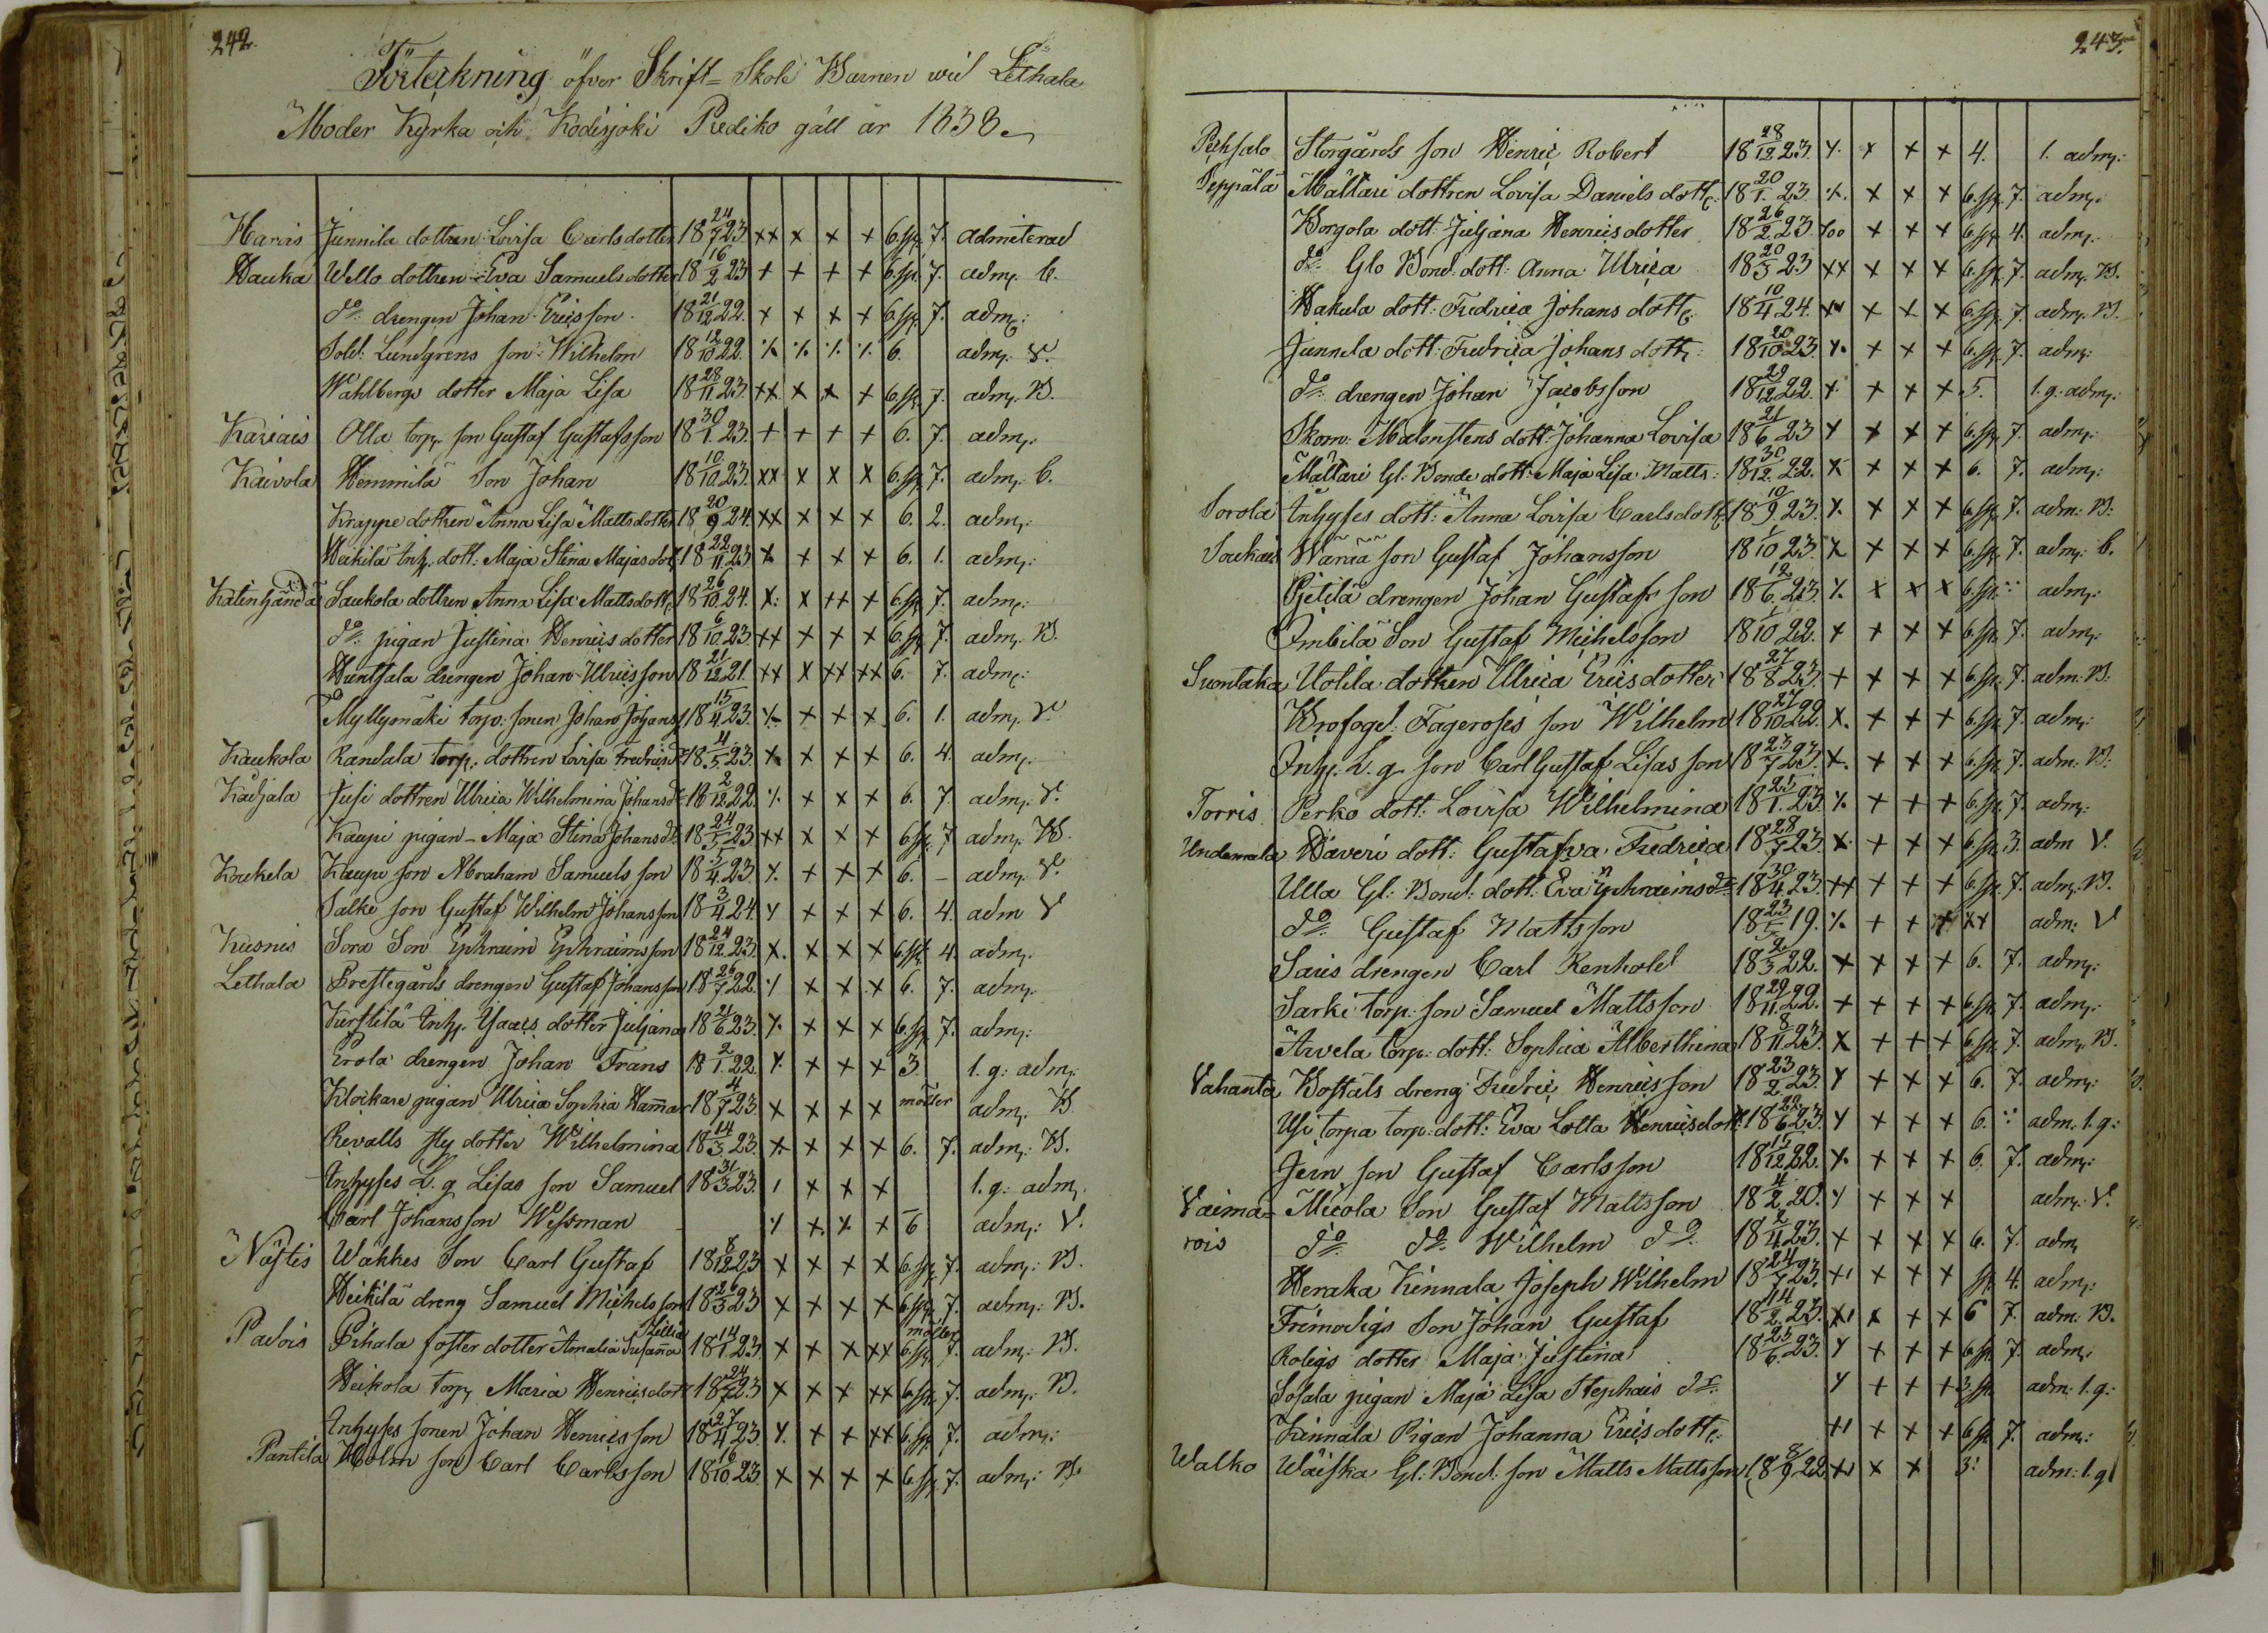 242.
Förteckning öfver Skrift-Skole Barnen vid Lethala
Moder Kyrka och Kodisjoki Prediko gäll år 1838.
Harvis Junnila dottren Lovisa Carlsdotter 18 24/7 23 xx x x x 6. sp. 7. admiterad
Hauka Wello dottren Eva Samuelsdotter 18 16/2 23 + + + + 6. sp. 7. adm. C.
do: drengen Johan Ericsson 18 21/12 22. x x x x 6. sp. 7. adm:
Sold: Lundgrens son Wilhelm 18 12/10 22. 6. adm. V.
Wahlbergs dotter Maja Lisa 18 28/11 23. xx x x x 6. sp. 7. adm. B.
Kariais Olla torp. son Gustaf Gustafsson 18 30/1. 23. + + + + 6. 7. adm.
Kaivola Hemmilä Son Johan 18 10/10. 23. xx x x x 6. sp. 7. adm. C.
Krappe dottren Anna Lisa Mattsdotter 18 20/9 24. xx x x x 6. 2. adm:
Heikilä Inh. dott: Maja Stina Majasdot 18 22/11. 23 x x x x 6. 1. adm:
Saukola dottren Anna Lisa Mattsdott: 18 26/10. 24. x. x xx x 6. sp. 7. adm:
do: pigan Justina Henricsdotter 18 6/10 23 xx x x x 6. sp. 7. adm. B.
Huntsala drengen Johan Ulricsson 18 21/12 21. xx x xx xx 6. 7. adm:
Myllymäki torp. sonen Johan Johanss 18 15/4 23. x x x x 6. 1. adm. V.
Kaukola Randala torp. dottren Lovisa Fredricsd 18 4/5. 23. x x x x 6. 4. adm.
Kadjala Jusi dottren Ulrica Wilhelmina Johansd: 18 2/12 22. x x x 6. 7 adm. V.
Kaupi pigan Maja Stina Johansdr 18 24/5 23 xx x x x 6 sp. 7 adm. B.
Koukela Kaupi son Abraham Samuelsson 18 5/4. 23. x + x x 6. – adm. V.
Salki son Gustaf Wilhelm Johansson 18 3/4 24. x x x x 6. 4. adm V
Kusnis Sora Son Ephraim Ephraimsson 18 24/12. 23. x. x x x 6 sp. 4. adm.
Lethala Prestegårds drengen Gustaf Johansson 18 26/7 22. x x x 6. 7. adm.
Kurstilä Inh. Ysacs dotter Juljana 18 21/6 23. x. x x x 6. sp. 7. adm:
Erola drengen Johan Frans 18 2/1. 22. x x x x 3. 1. g: adm.
Klockare pigan Ulrica Sophia Hamar 18 4/7 23. x x x x adm. B
Revalls sty dotter Wilhelmina 18 14/3. 23. x. x x x 6. 7. adm. B.
Inhyses L. g. Lisas son Samuel 18 31/3 23. x x x 1. g: adm.
Carl Johansson Wessman x x. x x 6 adm: V.
Nästis Wäkkes Son Carl Gustaf 18 8/12 23 x x x x 6. sp. 7. adm: B.
Heikilä dreng Samuel Michelsson 18 26/3 23 x x x x 6. sp. 7. adm: B.
Padois Pihala foster dotter Amalia Susanna 18 14/1 23. x x x xx 6. sp. 7. adm. B.
Heikola torp. Maria Henricsdott 18 24/7 23 x x x xx 6. sp. 7. adm: B.
Inhyses sonen Johan Henricsson 18 27/4 23. x. x x xx 6. sp. 7. adm:
Pantila Holm son Carl Carlsson 18 16/10 23. x x x x 6. sp. 7. adm: B.
243.
Pehsalo Storgårds son Henric Robert 18 28/12 23. x. x x x 4. 1. adm:
Peppälä Mältäri dottren Lovisa Daniels dott: 18 20/1. 23. x x x 6. sp. 7. adm.
Borgola dott: Juljana Henricsdotter 18 26/2. 23. x x x 6. sp. 4. adm.
do: Glo Bond. dott: Anna Ulrica 18 20/3 23 xx x x x 6. sp. 7. adm. B.
Hakula dott: Fredrica Johans dott: 18 10/4 24. xx x x x 6. sp. 7. adm. B.
Junnela dott: Fredrica Johans dott: 18 20/10 23. x. x x x 6. sp. 7. adm:
do: drengen Johan Jacobsson 18 29/12 22. x. x x x 5. 1. g. adm.
Skom: Malmstens dott: Johanna Lovisa 18 21/6 23 x x x x 6. sp. 7. adm:
Mältäri Gl: Bonde dott: Maja Lisa Matts: 18 30/12. 22. x x x x 6. 7. adm:
Sorola Inhyses dott: Anna Lovisa Carlsdott: 18 10/9. 23. x. x x x 6. sp. 7. adm: B:
Soukais Wänää son Gustaf Johansson 18 1/10 23. x x x x 6. sp. 7. adm: C.
Pjetilä drengen Johan Gustafsson 18 12/6. 23. x x x 6. sp. adm:
Imbilä Son Gustaf Michelsson 18 1/10 22. x x x x 6. sp. 7. adm:
Suontaka Uotila dottren Ulrica Ericsdotter 18 27/8 23. + + + + 6. sp. 7. adm: B:
Brofogd: Fageroses son Wilhelm 18 27/10 22. x. + + + 6. sp. 7. adm:
Inh. L. g. son Carl Gustaf Lisas son 18 23/7 23. x. + + + 6. sp. 7. adm: B:
Torris Perko dott: Lovisa Wilhelmina 18 25/1. 23. x + + + 6. sp. 7. adm:
Undamala Häveri dott: Gustafva Fredrica 18 28/7 23. x + + + 6. sp. 3. adm V.
Ulla Gl: Bond: dott: Eva Ephraimsdr 18 30/4 23. xx + + + 6. sp. 7. adm. B.
do: Gustaf Mattsson 18 23/5 19. x + + x xx adm: V
Saris drengen Carl Renhold 18 2/3 22. + + + + 6. 7. adm:
Sarki torp: son Samuel Mattsson 18 29/11 22. + + + + 6. sp. 7. adm:
Arvela torp: dott: Sophia Alberthina 18 8/11 23. x + + + 6. sp. 7. adm. B.
Vahanta Bostäls dreng Fredric Henricsson 18 23/2 23. x + + + 6. 7. adm:
Usi torpa torp: dott: Eva Lotta Henricsdott 18 22/6 23. x + + + 6. adm: 1. g:
Jern son Gustaf Carlsson 18 15/12 22. x. + + + 6. 7. adm:
Vaima- Micola Son Gustaf Mattsson 18 4/2 20. x + + + adm. V.
rois do: do: Wilhelm do: 18 2/4 23. + + + + 6. 7. adm
Heraka Kinnala Joseph Wilhelm 18 24/7 23. + + + sp. 4. adm:
Frimodigs Son Johan Gustaf 18 14/2 23. x + + 6 7. adm: B.
Roligs dotter Maja Justina 18 23/6. 23. x + + + 6. sp. 7. adm.
Sosala pigan Maja Lisa Stephais dr. x + + + 3. sp. adm: 1. g:
Kinnala Pigan Johanna Ericsdott: + + + 6 sp. 7. adm:
Walko Wäiska Gl: Bond: son Matts Mattsson 18 8/9 22 x x 3. adm: 1. g